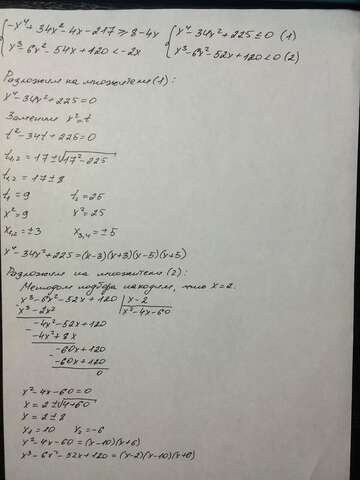 {-x⁴+34x²-4x-217≥8-4x {x⁴-34x²+225≤0 (1)
{x³-6x²-54x+120<-2x {x³-6x²-52x+120<0 (2)
Разложим на множители (1):
x⁴-34x²+225=0
Заменим x²=t
t²-34t+225=0
t₁,₂=17±√17²-225
t₁,₂=17±8
t₁=9 t₂=25
x²=9 x²=25
x₁,₂=±3 x₃,₄=±5
x⁴-34x²+225=(x-3)(x+3)(x-5)(x+5)
Разложим на множители (2):
Методом подбора находим, что x=2:
x³-6x²-52x+120 | x-2
x³-2x² x²-4x-60
-4x²-52x+120
-4x²+8x
-60x+120
-60x+120
0
x²-4x-60=0
x=2±√4+60
x=2±8
x₁=10 x₂=-6
x²-4x-60=(x-10)(x+6)
x³-6x²-52x+120=(x-2)(x-10)(x+6)